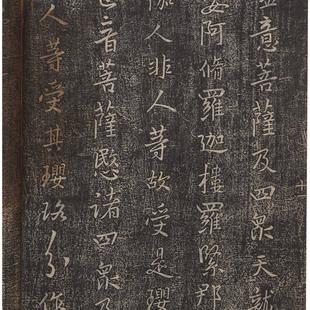 意菩薩及四衆天龍
婆阿脩羅迦樓羅緊那
伽人非人等故受是瓔
世音菩薩愍諸四衆及
人等受其瓔珞分作